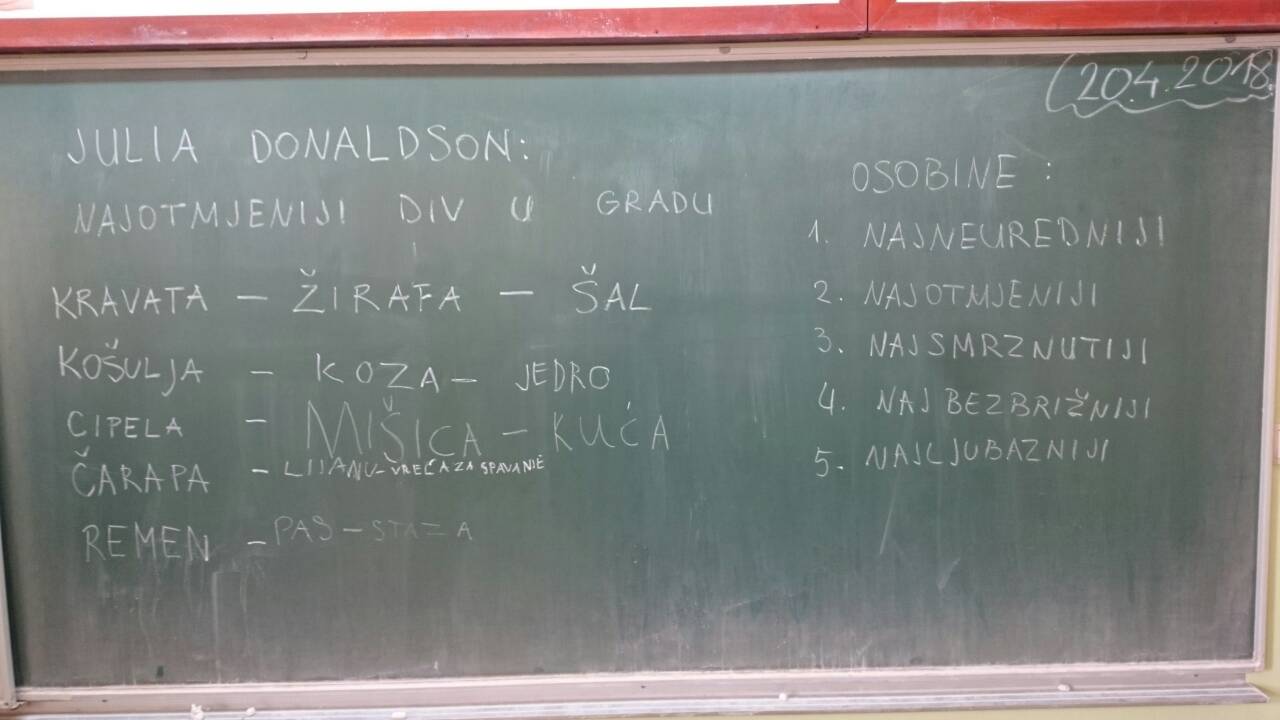 (20.4.2018.
JULIA DONALDSON:
NAJOTMJENIJI DIV U GRADU
KRAVATA – ŽIRAFA – ŠAL
KOŠULJA – KOZA – JEDRO
CIPELA – MIŠICA – KUĆA
ČARAPA – LIJANU – VREĆA ZA SPAVANJE
REMEN – PAS – STAZA
OSOBINE :
1. NAJNEUREDNIJI
2. NAJOTMJENIJI
3. NAJSMRZNUTIJI
4. NAJBEZBRIŽNIJI
5. NAJLJUBAZNIJI